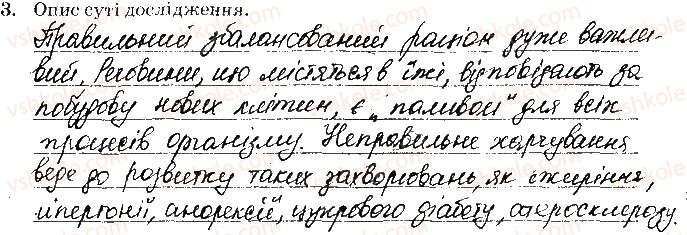 3. Опис суті дослідження.
Правильний збалансований раціон дуже важли-
вий. Речовини, що містяться в їжі, відповідають за
побудову нових клітин, є "паливом" для всіх
процесів організму. Неправильне харчування
веде до розвитку таких захворювань, як ожиріння,
гіпертонії, анорексії, цукрового діабету, атеросклерозу.